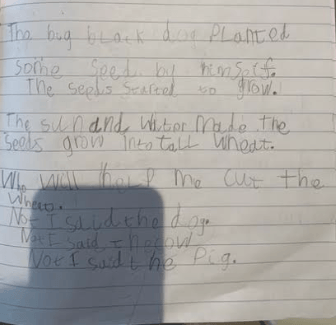 The big black dog Planted
some seed by himself.
The seeds started to grow.
The sun and water made the
seeds grow into tall wheat.
Who will help me cut the
wheat.
Not I said the dog.
Not I said the cow
Not I said the Pig.